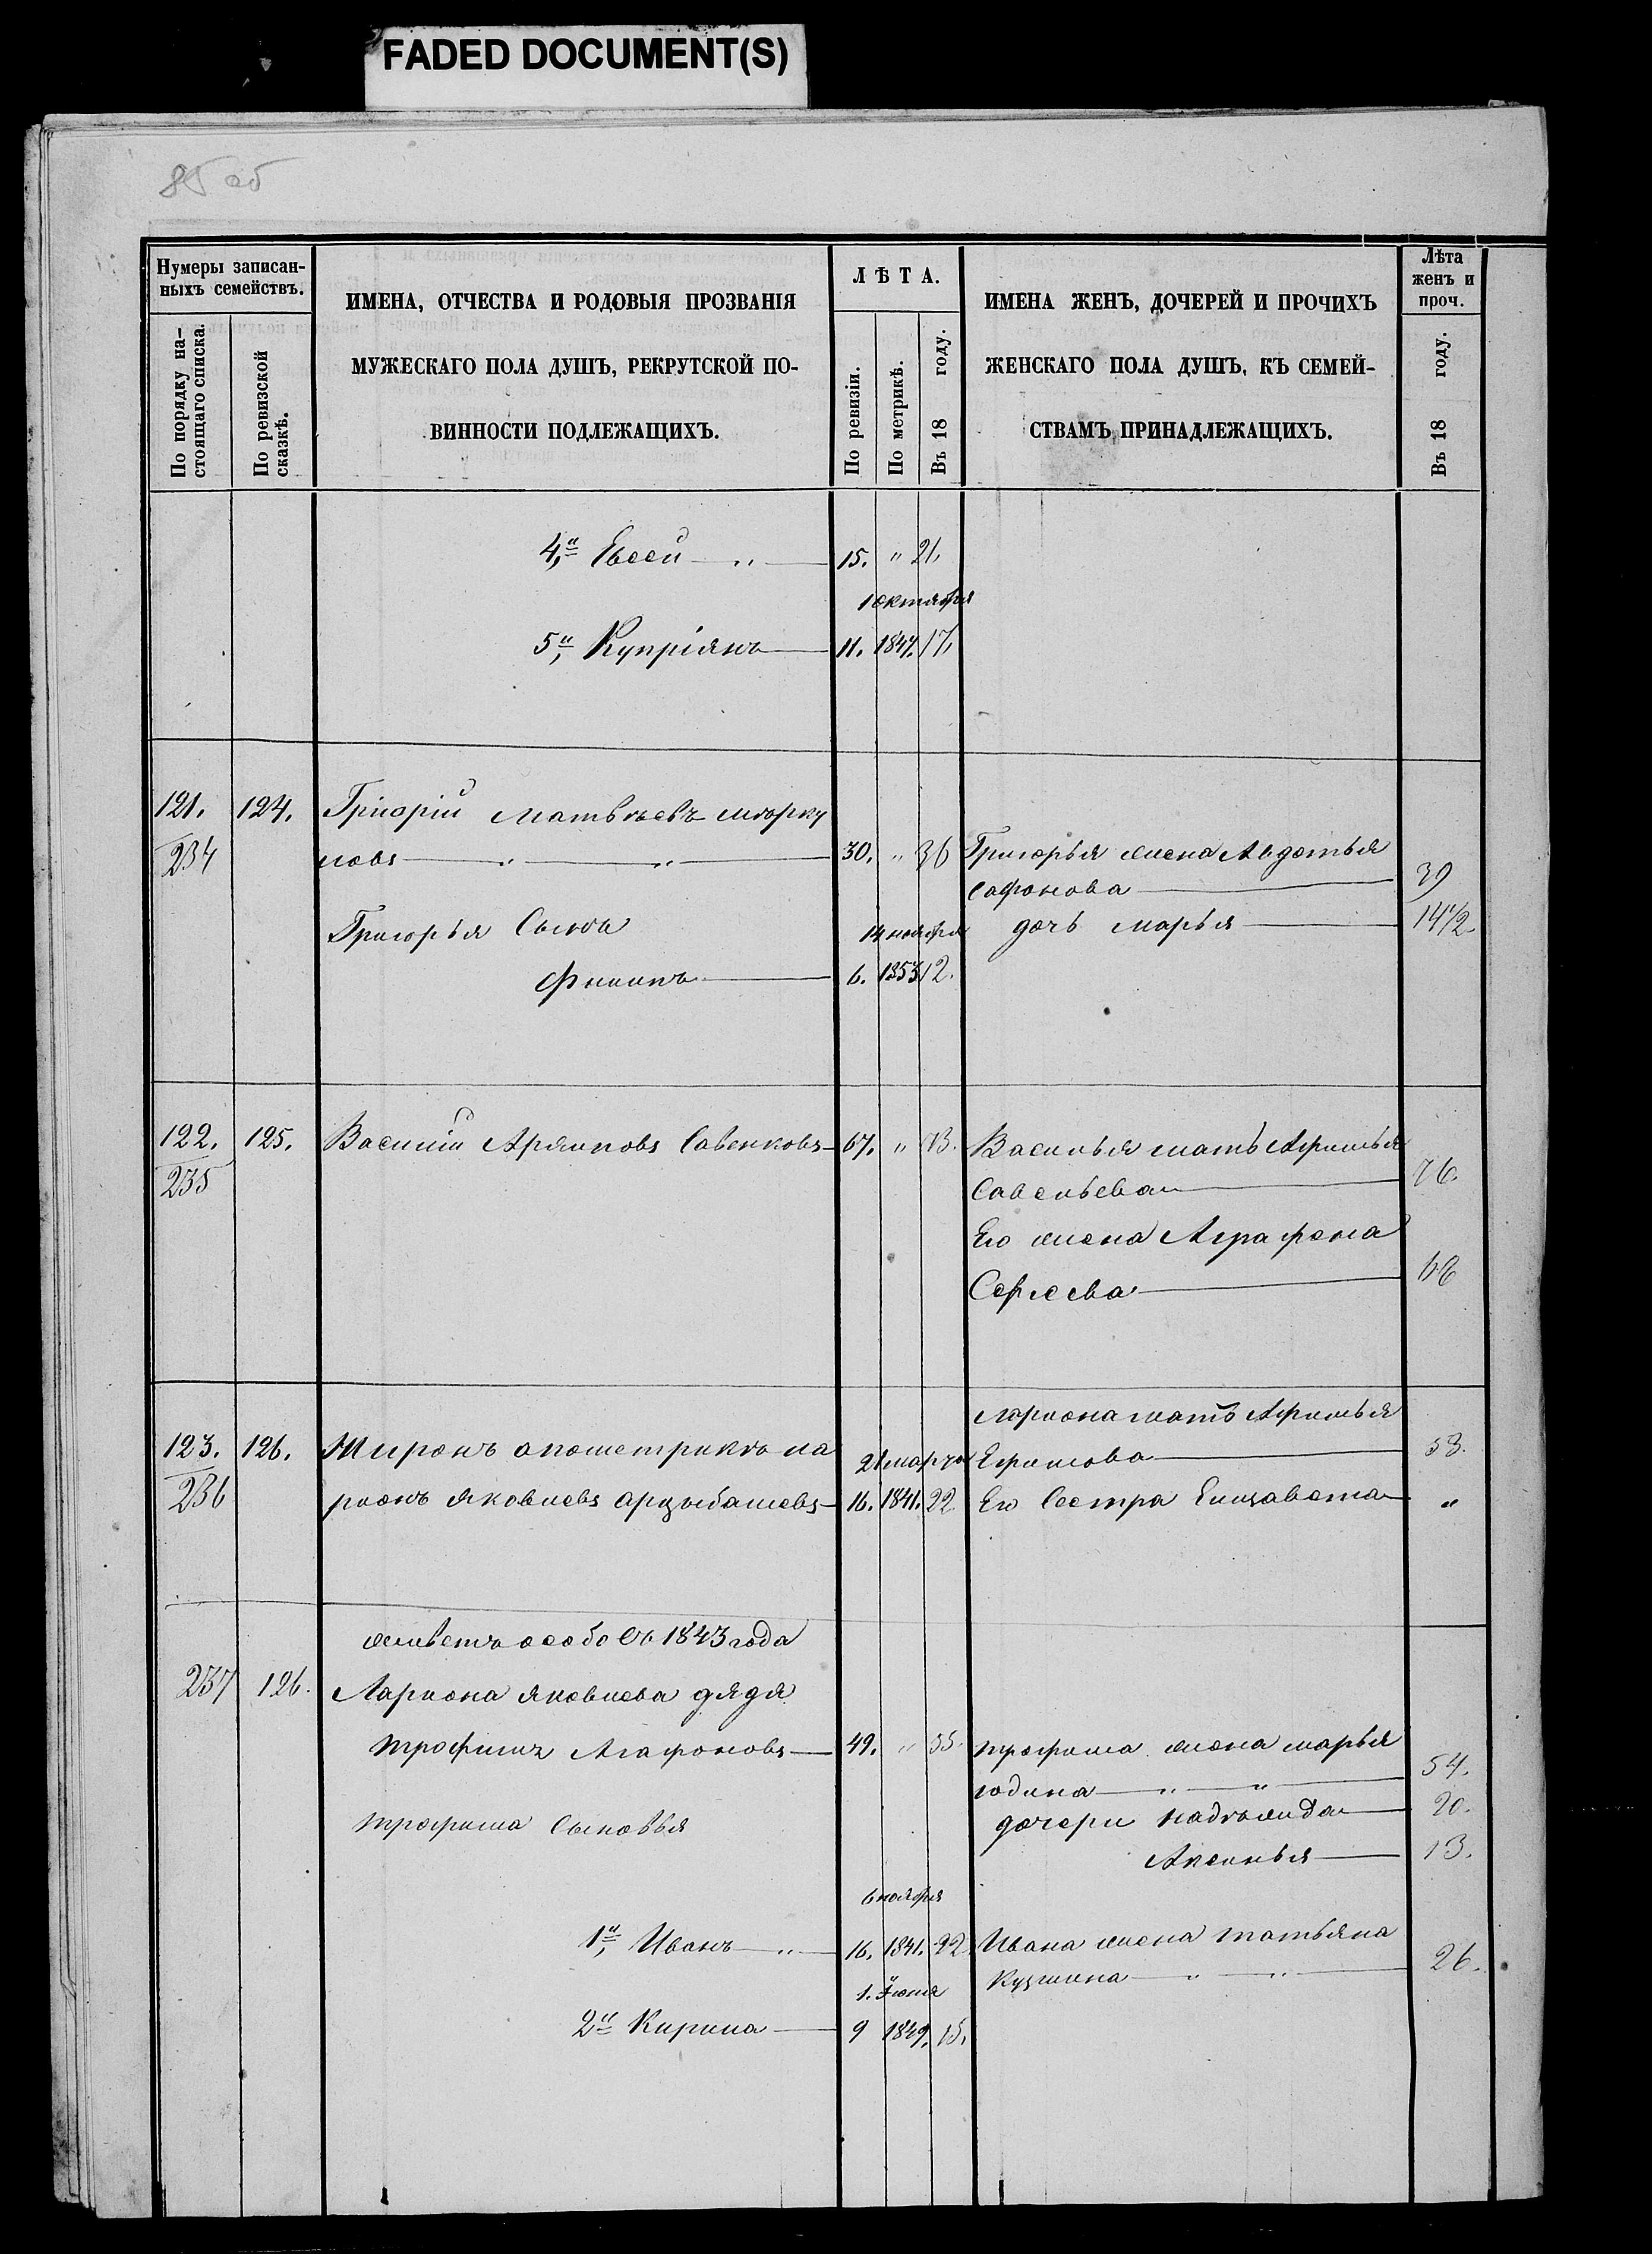 FADED DOCUMENT(S)
85 об
Нумеры записан-
ныхъ семействъ.
По порядку на-
стоящаго списка.
По ревизской
сказкѣ.
ИМЕНА, ОТЧЕСТВА И РОДОВЫЯ ПРОЗВАНІЯ
МУЖЕСКАГО ПОЛА ДУШЪ, РЕКРУТСКОЙ ПО-
ВИННОСТИ ПОДЛЕЖАЩИХЪ.
ЛѢТА.
По ревизіи.
По метрикѣ.
Въ 18 году.
ИМЕНА ЖЕНЪ, ДОЧЕРЕЙ И ПРОЧИХЪ
ЖЕНСКАГО ПОЛА ДУШЪ, КЪ СЕМЕЙ-
СТВАМЪ ПРИНАДЛЕЖАЩИХЪ.
Лѣта
женъ и
проч.
Въ 18 году.
4,й Евсей " 15. " 21,
1 октября
5й, Купріянъ 11. 1847. 17,
121. 124. Григорій Матвѣевъ
234 30. " 36 Григорья жена Авдотья
Сафонова 39
Григорья Сынъ 14 ноября дочь Марья 14 1/2
6. 1853 12.
122. 125. Василий Савенковъ 67. " 73. Василья мать Афимья
235 Савельева 76.
Его жена Аграфена
Сергеева 68
Лариона мать Афимья
123. 126. Миронъ апометрикѣ Ла 21 марта Ефимова 53.
236 рионъ Яковлевъ Арцыбашевъ 16. 1841. 22 Его Сестра Елизавета "
живетъ особо Съ 1843 года
237 126. Лариона Яковлева дядя
Трофимъ Агафоновъ 49. " 55. Трофима жена Марья
година " " 54.
Трофима Сыновья дочери Надѣжида 20.
Аксинья 13.
6 ноября
1й, Иванъ " 16. 1841. 22 Ивана жена Татьяна
Кузмина " " 26.
1. Июня
2й Кирила 9 1849. 15.